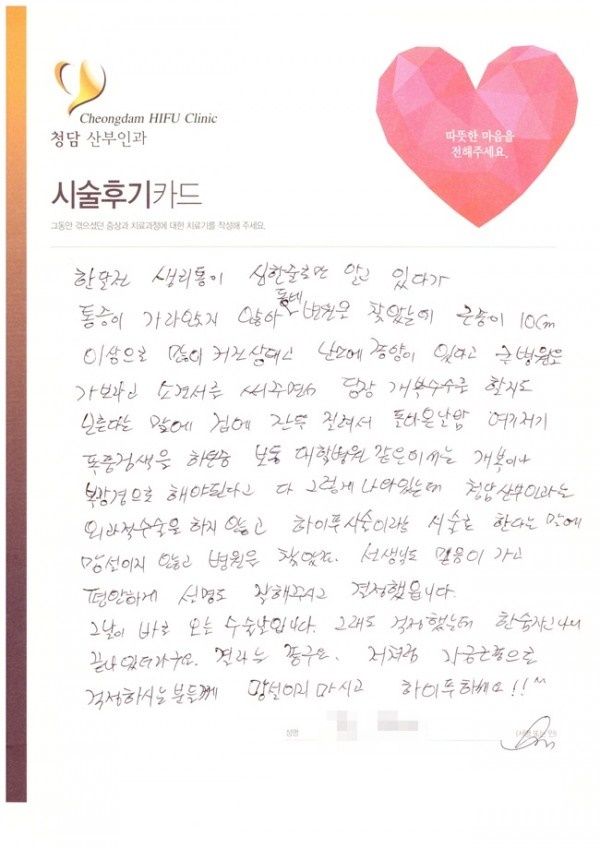 Cheongdam HIFU Clinic
청담 산부인과
따뜻한 마음을
전해주세요.
시술후기카드
그동안 겪으셨던 증상과 치료과정에 대한 치료기를 작성해 주세요.
한달전 생리통이 심한줄로만 알고 있다가
통증이 가라앉지 않아 동네 병원을 찾았는데 근종이 10cm
이상으로 많이 커진상태고 난소에 종양이 있다고 큰병원으로
가보라고 소견서를 써주면서 당장 개복수술을 할지도
모른다는 말에 겁에 잔뜩 질려서 돌아온날밤 여기저기
폭풍검색을 하던중 보통 대학병원 같은데서는 개복이나
복강경으로 해야된다고 다 그렇게 나와있는데 청담산부인과는
외과적수술을 하지 않고 하이푸시술이라는 시술을 한다는 말에
망설이지 않고 병원을 찾았죠. 선생님도 믿음이 가고
편안하게 설명도 잘해주시고 결정했읍니다.
그날이 바로 오늘 수술날입니다. 그래도 걱정했는데 한숨자고나니
끝나있더라구요. 결과는 좋구요. 저처럼 자궁근종으로
걱정하시는분들께 망설이지 마시고 하이푸하세요!! ^^
성명